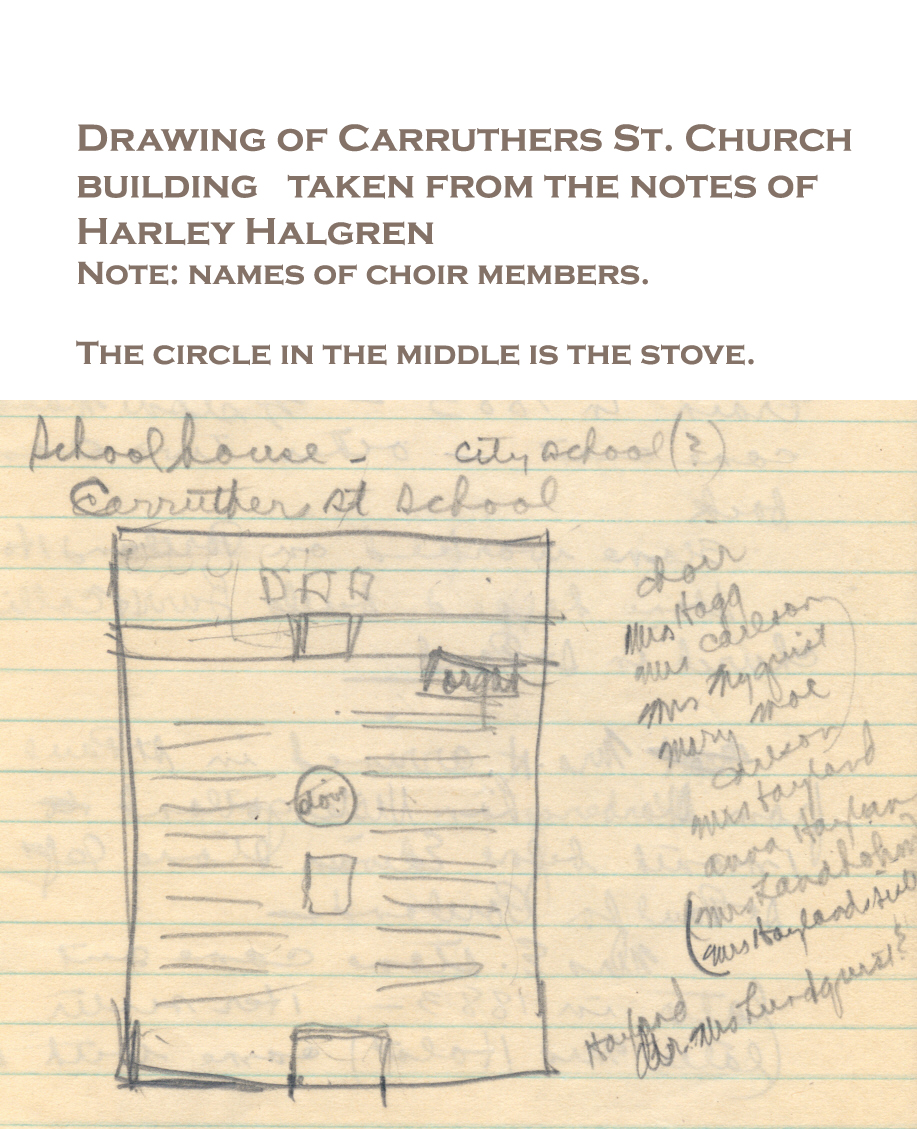 Drawing of Carruthers St. Church
building taken from the notes of
Harley Halgren
Note: names of choir members.
The circle in the middle is the stove.
Schoolhouse - city school (?)
Carruthers st school
choir
Mrs Hagg
Mrs Carlson
Mrs Nyquist
Mary Moe
Carlson
organ
stove
Mrs Hayland
Anna
Mrs
Mrs Hayland
Hayland
Mrs Lundquist?